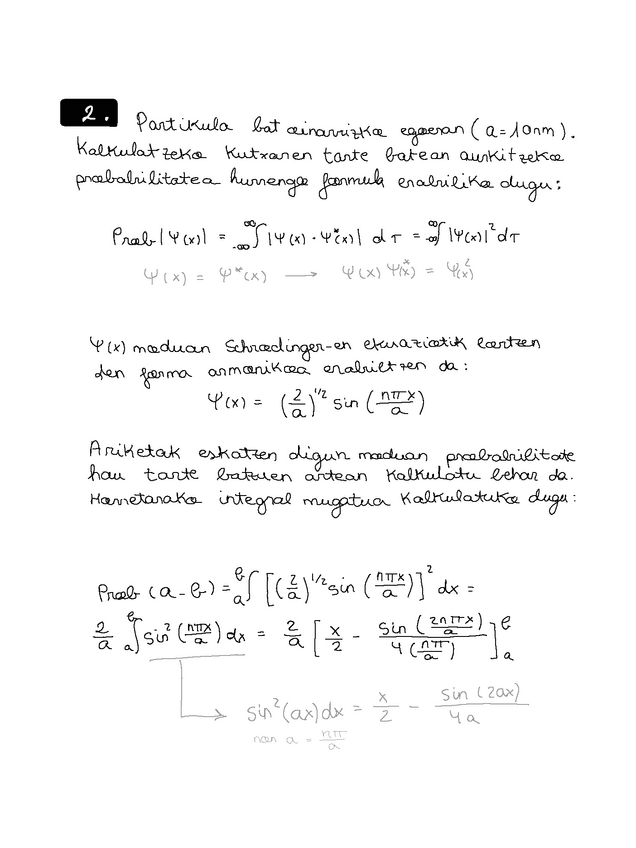 2.
Partikula bat oinarrizko egoeran (a=10nm).
Kalkulatzeko kutxaren tarte batean aurkitzeko
probabilitatea hurrengo formula erabiliko dugu:
Prob|Ψ(x)| = -∞∫∞ |Ψ(x)·Ψ*(x)| dτ = -∞∫∞ |Ψ(x)|² dτ
Ψ(x) = Ψ*(x) → Ψ(x) Ψ(x)* = Ψ(x)²
Ψ(x) moduan Schrodinger-en ekuaziotik lortzen
den forma armonikoa erabiltzen da:
Ψ(x) = (2/a)^1/2 sin (nπx/a)
Ariketak eskatzen digun moduan probabilitate
hau tarte batzuen artean kalkulatu behar da.
Horretarako integral mugatua kalkulatuko dugu:
Prob (a-b) = a∫b [(2/a)^1/2 sin (nπx/a)]² dx =
2/a a∫b sin² (nπx/a) dx = 2/a [x/2 - sin (2nπx/a)/4(nπ/a)]b a
sin²(ax)dx = x/2 - sin(2ax)/4a
non a = nπ/a